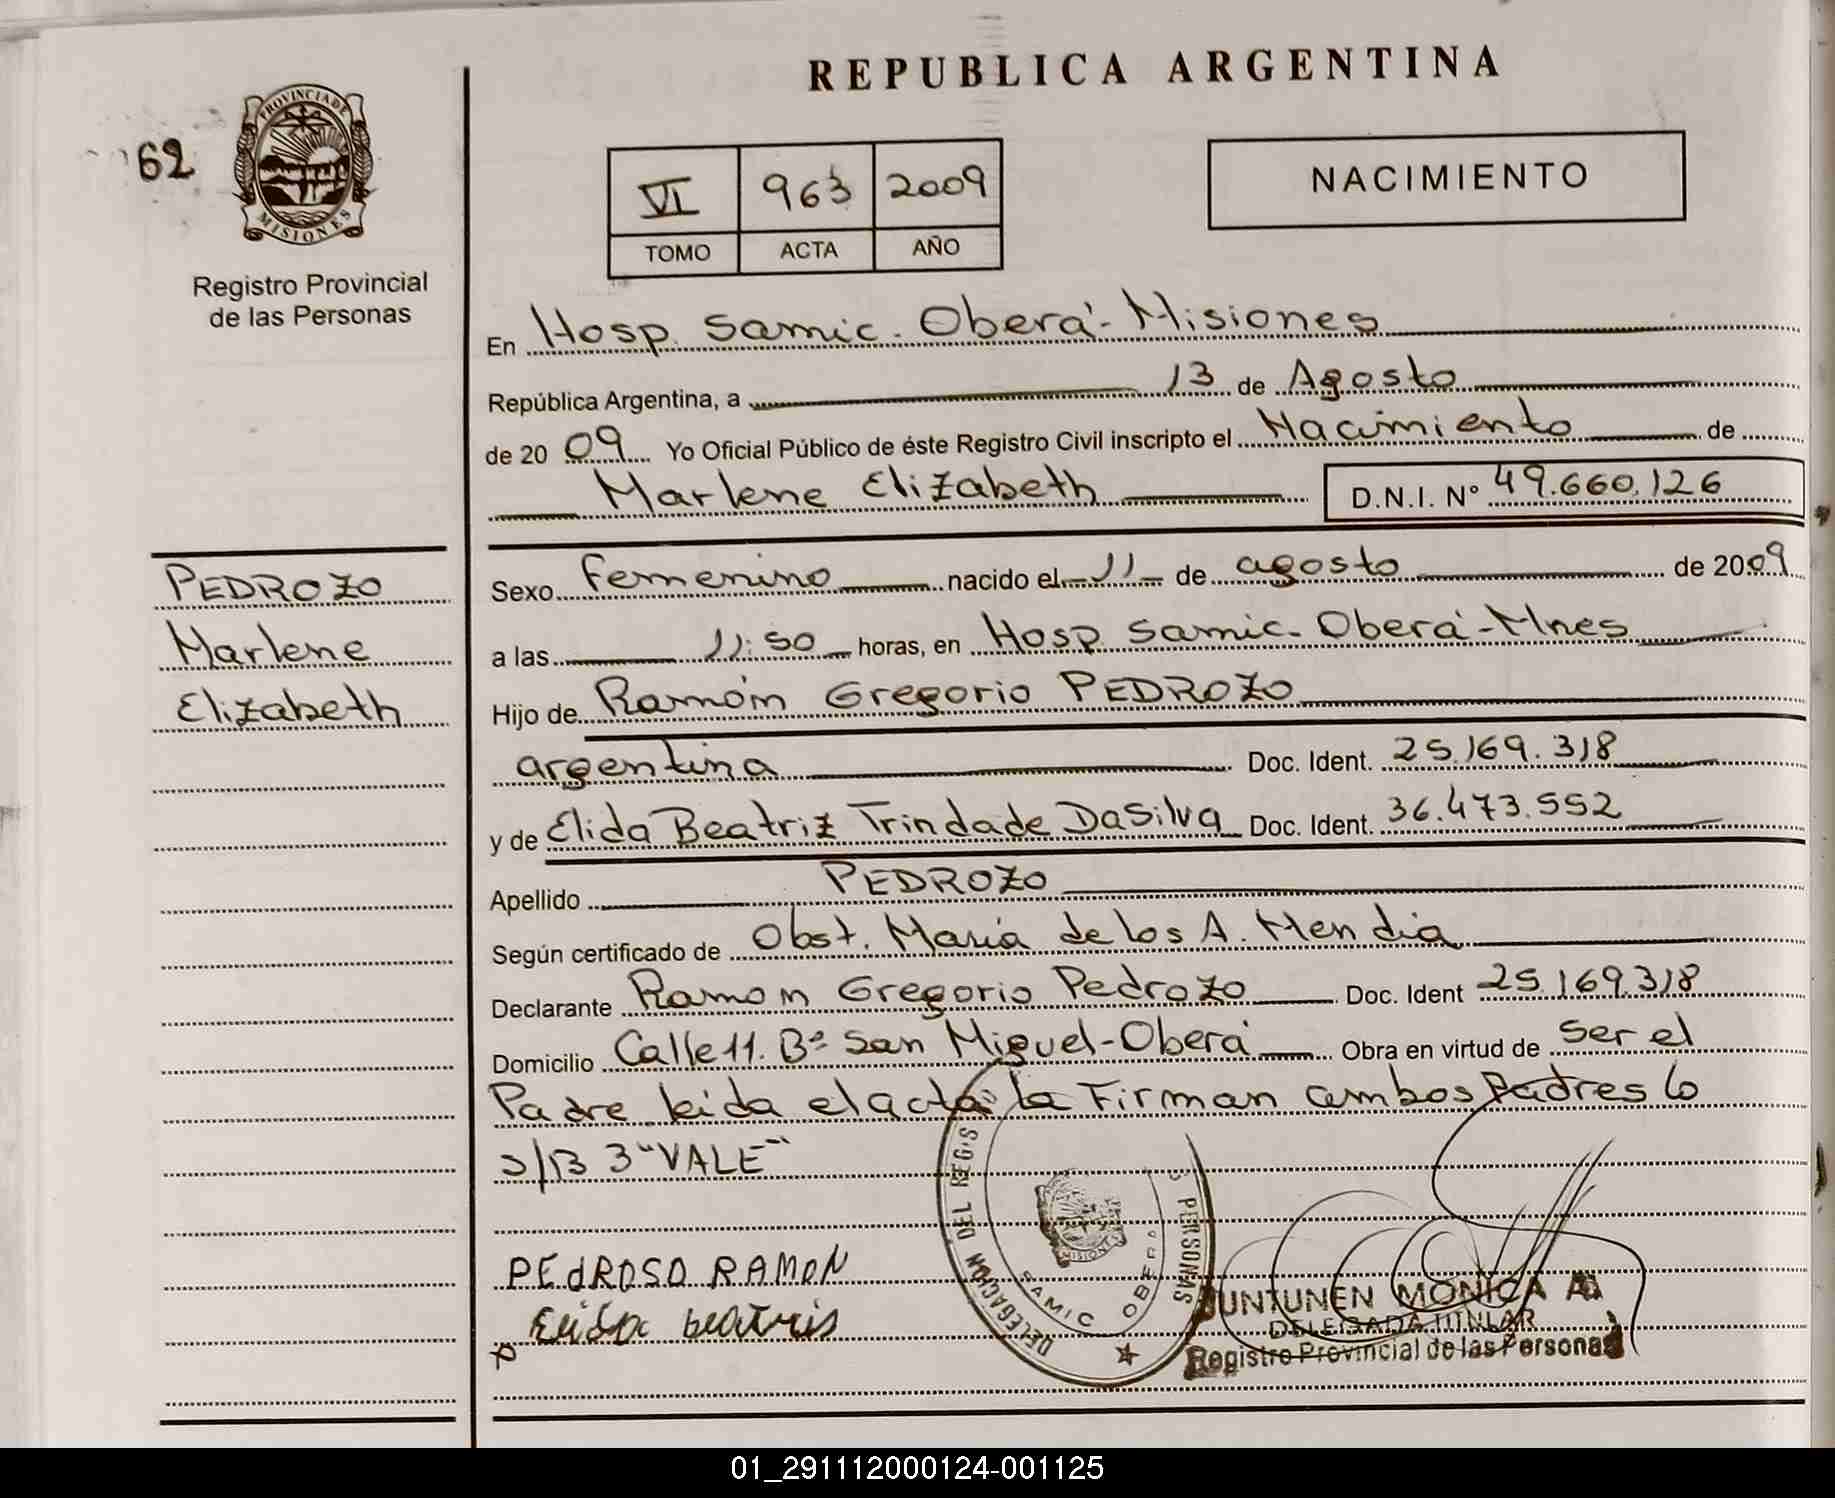 REPUBLICA ARGENTINA
62
PROVINCIA DE
MISIONES
Registro Provincial
de las Personas
VI 963 2009
TOMO ACTA AÑO
NACIMIENTO
En Hosp. Samic. Oberá - Misiones
República Argentina, a 13 de Agosto
de 20 09 Yo Oficial Público de éste Registro Civil inscripto el Nacimiento de
Marlene Elizabeth D.N.I. N° 49.660.126
PEDROZO
Marlene
Elizabeth
Sexo Femenino nacido el 11 de agosto de 2009
a las 11:50 horas, en Hosp. Samic. Oberá - Mnes
Hijo de Ramón Gregorio PEDROZO
argentina Doc. Ident. 25.169.318
y de Elida Beatriz Trindade Da Silva Doc. Ident. 36.473.552
Apellido PEDROZO
Según certificado de Obst. María de los A. Mendia
Declarante Ramon Gregorio Pedrozo Doc. Ident 25.169.318
Domicilio Calle 11. Bº San Miguel - Oberá Obra en virtud de Ser el
Padre leida el acta la Firman ambos Padres lo
S/B 3 "VALE"
PEdROSO RAMON
Elida beatris
DELEGACION DEL REGIS PERSONAS
MISIONES
SAMIC OBERA
JUNTUNEN MONICA A.
DELEGADA TITULAR
Registro Provincial de las Personas
01_291112000124-001125